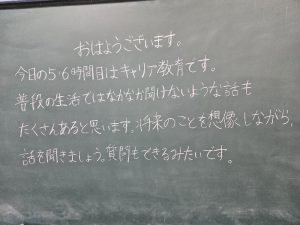 おはようございます。
今日の5・6時間目はキャリア教育です。
普段の生活ではなかなか聞けないような話も
たくさんあると思います。将来のことを想像しながら、
話を聞きましょう。質問もできるみたいです。